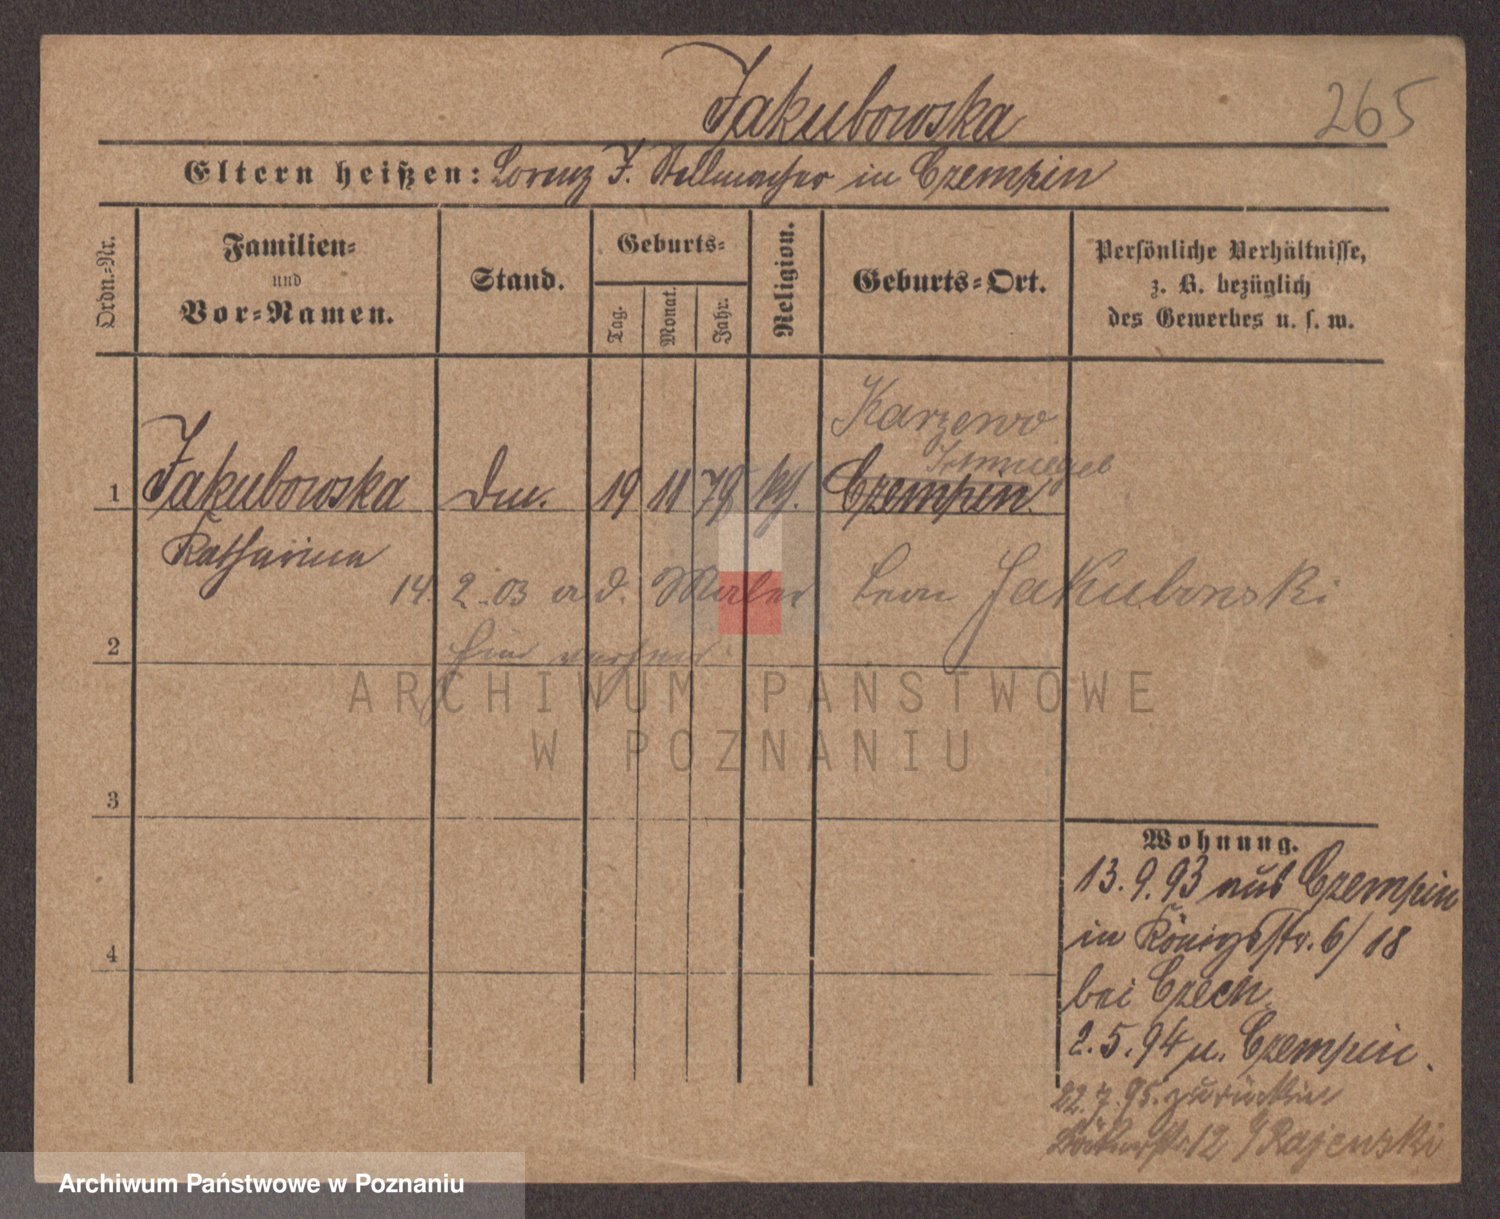 Jakubowska
265
Eltern heißen: Lorenz J. Stellmacher in Czempin
Ordn.-Nr.
Familien-
und
Vor-Namen.
Stand.
Geburts-
Tag.
Monat.
Jahr.
Religion.
Geburts-Ort.
Persönliche Verhältnisse,
z. B. bezüglich
des Gewerbes u. s. w.
Karzewo
Schmiegel
1 Jakubowska 19 11 79 kt. Czempin
Katharina
14. 2. 03 a d. Maler Leon Jakubowski
2
ARCHIWUM PAŃSTWOWE
W POZNANIU
3
4
Wohnung.
13. 9. 93 aus Czempin
in Königsstr. 6/18
bei Czech
2. 5. 94 n. Czempin.
22. 7. 95. zurück in
12 Rajewski
Archiwum Państwowe w Poznaniu